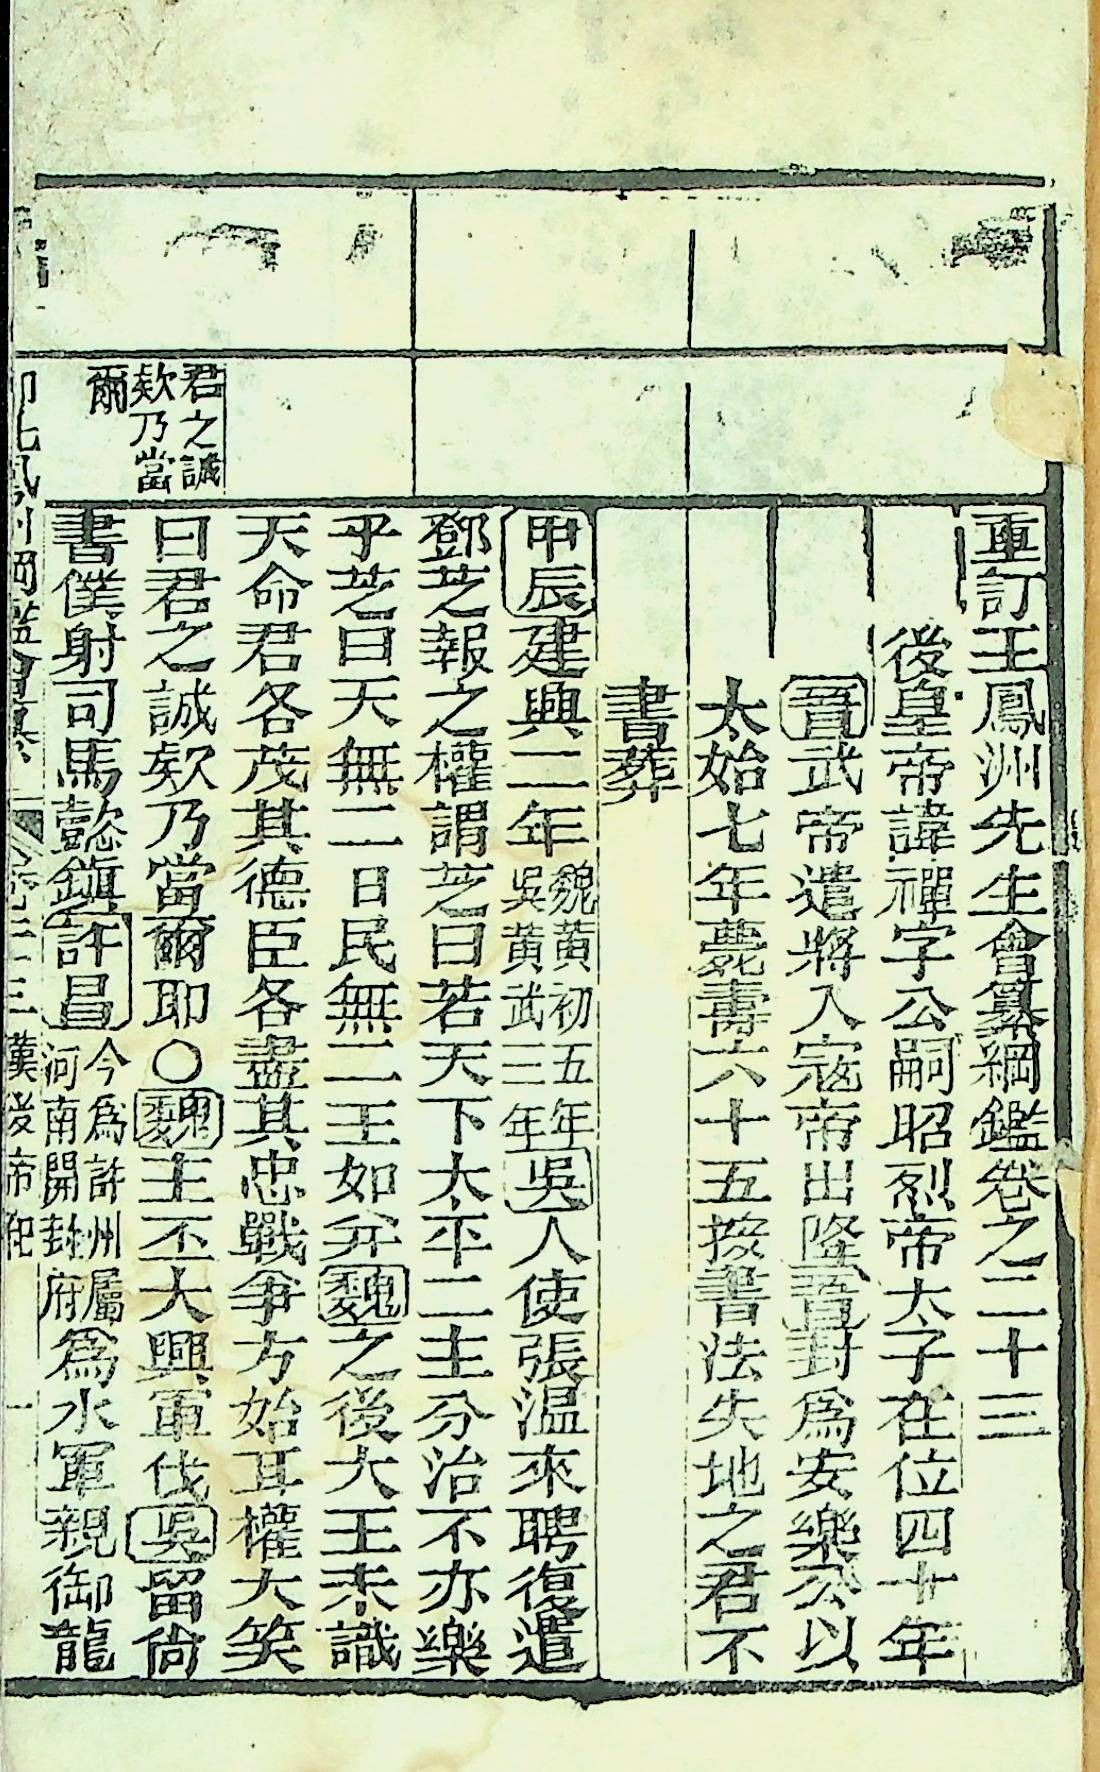 重訂王鳳洲先生會纂綱鑑卷之二十三
後皇帝諱禪字公嗣昭烈帝太子在位四十年
晉武帝遣將入寇帝出降晉封爲安樂公以
太始七年薨壽六十五按書法失地之君不
書葬
甲辰建興二年魏黃初五年吳黃武三年吳人使張溫來聘復遣
鄧芝報之權謂芝曰若天下太平二主分治不亦樂
乎芝曰天無二日民無二王如并魏之後大王未識
天命君各茂其德臣各盡其忠戰爭方始耳權大笑
君之誠
欵乃當
爾
曰君之誠欵乃當爾耶〇魏主丕大興軍伐吳留尙
書僕射司馬懿鎭許昌今爲許州屬河南開封府爲水軍親御龍
鳳州綱鑑會纂 卷二十三 漢後帝紀 一